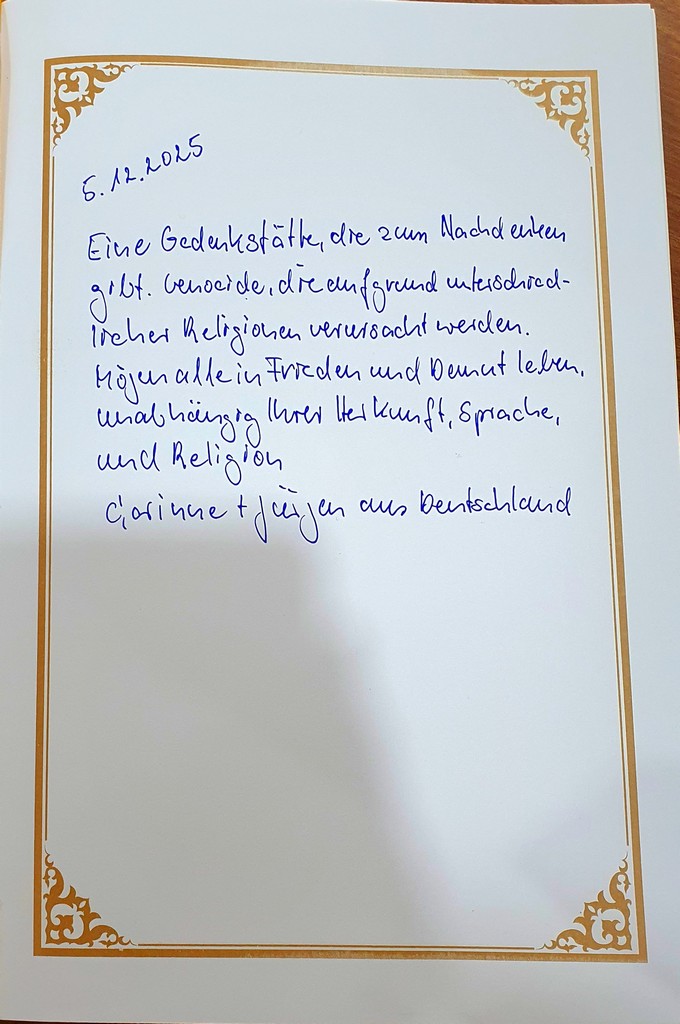 5.12.2025
Eine Gedenkstätte, die zum Nachdenken
gibt. Genocide, die aufgrund unterschied-
licher Religionen verursacht werden.
Mögen alle in Frieden und Demut leben,
unabhängig Ihrer Herkunft, Sprache,
und Religion
Corinne + Jürgen aus Deutschland